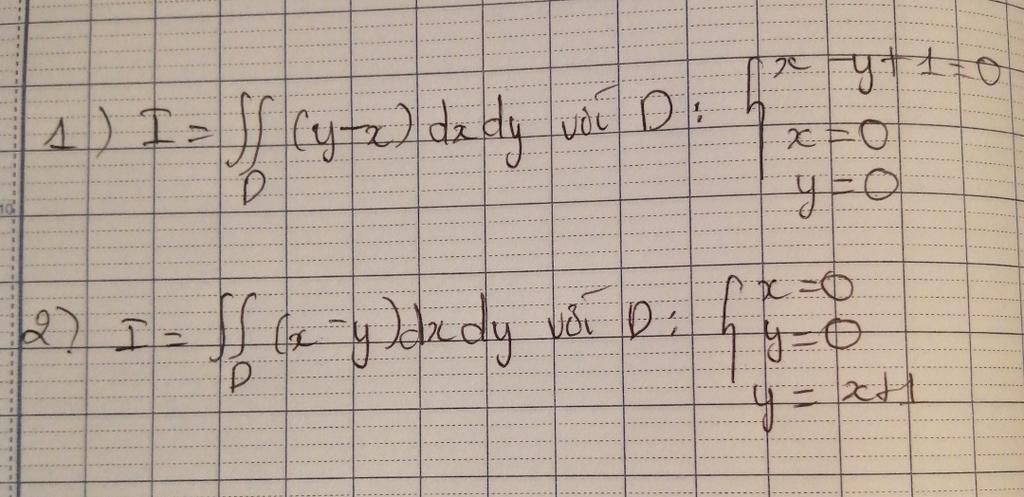 1) I = ∬_D (y-x) dxdy với D: { x - y + 1 = 0
x = 0
y = 0
2) I = ∬_D (x-y) dxdy với D: { x = 0
y = 0
y = x+1